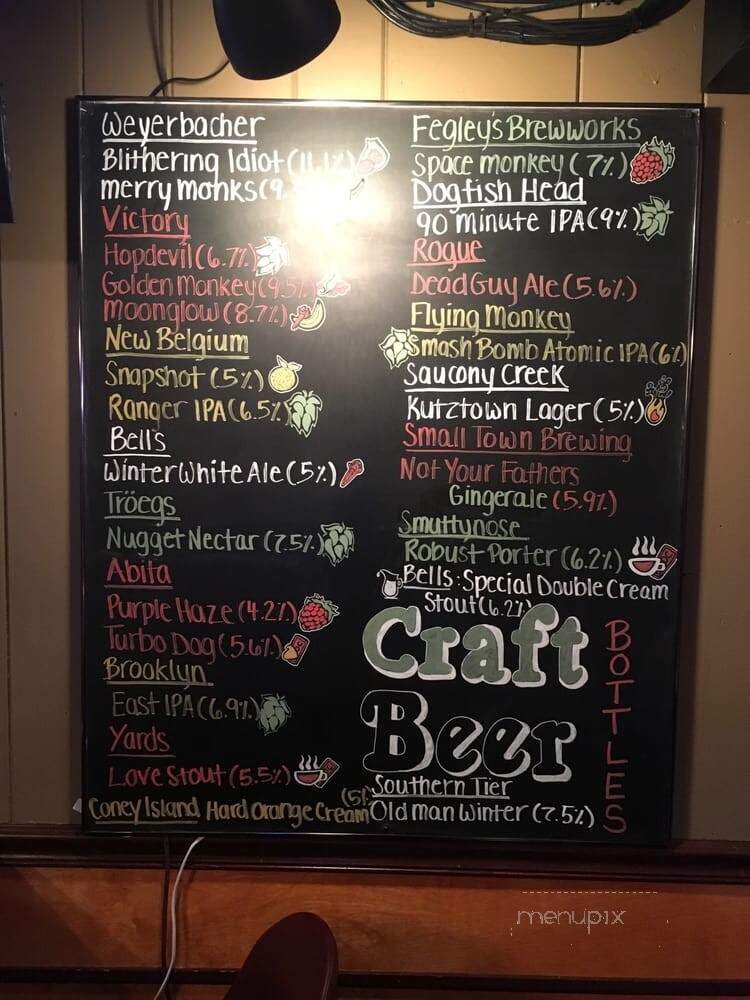 Weyerbacher
Blithering Idiot (11.1%)
merry monks (9.
Victory
Hopdevil (6.7%)
Golden Monkey (9.5%)
Moonglow (8.7%)
New Belgium
Snapshot (5%)
Ranger IPA (6.5%)
Bell's
Winter White Ale (5%)
Tröegs
Nugget Nectar (7.5%)
Abita
Purple Haze (4.2%)
Turbo Dog (5.6%)
Brooklyn
East IPA (6.9%)
Yards
Love Stout (5.5%)
Coney Island Hard Orange Cream (5%
Fegley's Brewworks
Space monkey (7%)
Dogfish Head
90 minute IPA (9%)
Rogue
Dead Guy Ale (5.6%)
Flying Monkey
Smash Bomb Atomic IPA (6%)
Saucony Creek
Kutztown Lager (5%)
Small Town Brewing
Not Your Fathers
Gingerale (5.9%)
Smuttynose
Robust Porter (6.2%)
Bells: Special Double Cream
Stout (6.2%)
Craft
Beer
BOTTLES
Southern Tier
Old man Winter (7.5%)
menupix